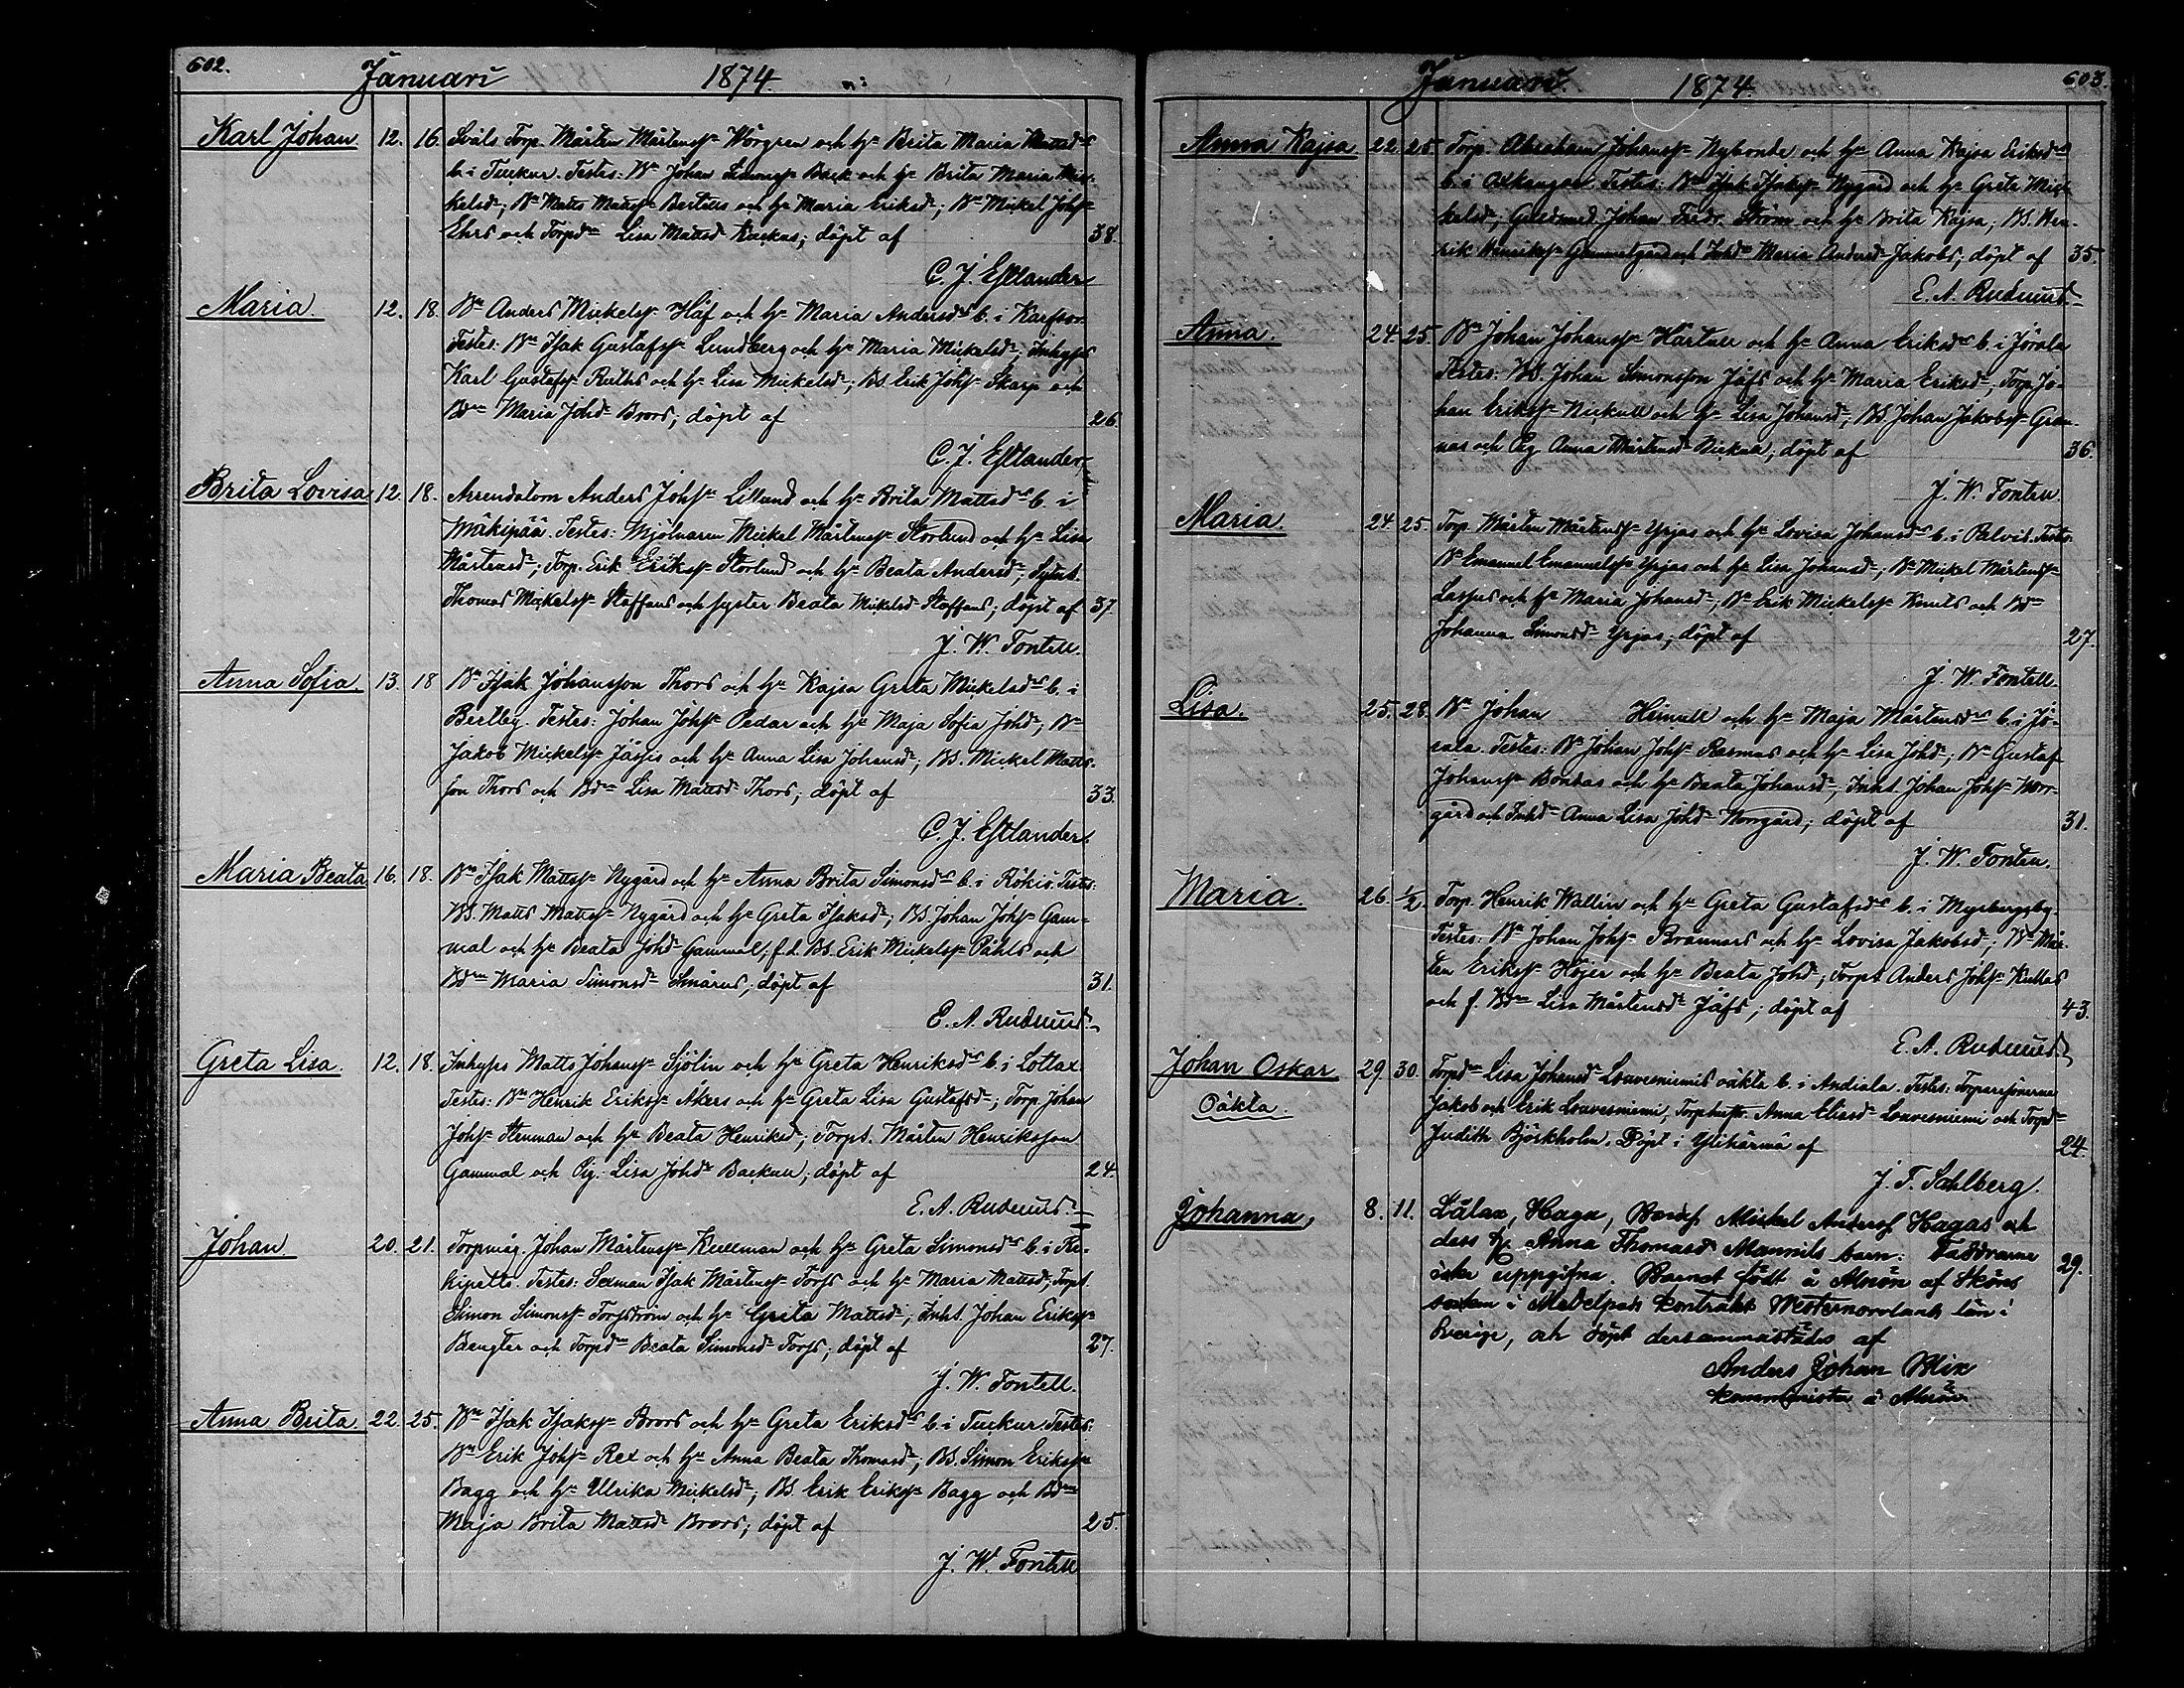 602.
Januari 1874.
Karl Johan 12. 16. Torp. Mårten Mårtenss: och h: Brita Maria Mattsd:s
b. i Tuckur. Testes: B:n Johan Back och h: Brita Maria Mic-
kelsd:; B:n Matts Mattss: Bertills och h: Maria Eriksd:; B:n Mickel Johss:
Ehrs och Torpd:n Lisa Mattsd: Kackas; döpt af 38.
C. J. Estlander
Maria. 12. 18. B:n Anders Mickelss: Håf och h: Maria Andersd:s b. i Karfsor.
Testes: B:n Isak Gustafss: Lundberg och h: Maria Mickelsd:; Inhyses
Karl Gustafss: och h: Lisa Mickelsd:; BS. Erik Johss: Skarp och
Bd:n Maria Johd: Brors; döpt af 26.
C. J. Estlander.
Brita Lovisa 12. 18. Arrendatorn Anders Johss: Lillund och h: Brita Mattsd:s b. i
Mäkipää. Testes: Mjölnaren Mickel Mårtenss: Storlund och h: Lisa
Mårtensd:; Torp. Erik Erikss: Storlund och h: Beata Andersd:; Sytnt.
Thomas Mickelss: Staffans och syster Beata Mickelsd: Staffans; döpt af 37.
J. W. Fontell.
Anna Sofia. 13. 18 B:n Isak Johansson Thors och h: Kajsa Greta Mickelsd:s b. i
Bertby. Testes: Johan Johss: Pedar och h: Maja Sofia Johd:; B:n
Jakob Mickelss: och h: Anna Lisa Johansd:; BS. Mickel Matts-
son Thors och Bd:n Lisa Mattsd: Thors; döpt af 33.
C. J. Estlander.
Maria Beata 16. 18. B:n Isak Mattss: Nygård och h: Anna Brita Simonsd:s b. i Rökiö. Testes:
BS. Matts Mattss: Nygård och h: Greta Isaksd:; BS. Johan Johss: Gam-
mal och h: Beata Johd: Gammal; f.d. BS. Erik Mickelss: Påhls och
Bd:n Maria Simonsd: Smårus; döpt af 31.
E. A. Rudnäs
Greta Lisa. 12. 18. Inhyses Matts Johanss: Sjölin och h: Greta Henriksd:s b. i Lottax.
Testes: B:n Henrik Erikss: Åkers och h: Greta Lisa Gustafsd:; Torp. Johan
Johss: Stenman och h: Beata Henriksd:; Torps. Mårten Henriksson
Gammal och Pig. Lisa Johd: Backull; döpt af 24.
E. A.
Johan 20. 21. Torpmåg. Johan Mårtenss: Kullman och h: Greta Simonsd:s b. i Re-
kipelto. Testes: Sexman Isak Mårtenss: Torfs och h: Maria Mattsd:; Torps.
Simon Simonss: Torfström och h: Greta Mattsd:; Inhs. Johan Erikss:
Bengter och Torpd:n Beata Simonsd: Torfs; döpt af 27.
J. W. Fontell.
Anna Brita. 22. 25. B:n Isak Isakss: Brors och h: Greta Eriksd:s b. i Tuckur. Testes:
B:n Erik Johss: Rex och h: Anna Beata Thomasd:; BS. Simon Erikss:
Bagg och h: Ulrika Mickelsd:; BS. Erik Erikss: Bagg och Bd:n
Maja Brita Mattsd: Brors; döpt af 25.
J. W. Fontell
603.
Januari. 1874.
Anna Kajsa 22. 25. Torp. Abraham Johanss: Nybonde och h: Anna Kajsa Eriksd:s
b. i Oxkangar. Testes: B:n Isak Isakss: Nygård och h: Greta Mic-
kelsd:; Guldsmed Johan Fredr. Ström och h: Brita Kajsa; BS. Hen-
rik Henrikss: Gammelgård och Inhd:n Maria Andersd: Jakobs; döpt af 35.
E. A.
Anna. 24. 25. B:n Johan Johanss: Härtull och h: Anna Eriksd:s b. i Jörala
Testes: BS. Johan Simonsson Jåfs och h: Maria Eriksd:; Torp. Jo-
han Erikss: Nickull och h: Lisa Johansd:; BS. Johan Jakobss: Gran-
nas och Pig. Anna Mårtensd: Nickull; döpt af 36.
J. W. Fontell
Maria. 24. 25. Torp. Mårten Mårtenss: Yrjas och h: Lovisa Johansd:s b. i Palvis. Testes.
B:n Emanuel Emanuelss: Yrjas och h: Lisa Johansd:; B:n Mickel Mårtenss:
Laspus och h: Maria Johansd:; B:n Erik Mickelss: Knuts och Bd:n
Johanna Simonsd: Yrjas; döpt af 27.
J. W. Fontell.
Lisa. 25. 28. B:n Johan Heinull och h: Maja Mårtensd:s b. i Jö-
rala. Testes: B:n Johan Johss: Rasmus och h: Lisa Johd:; B:n Gustaf
Johanss: Bondas och h: Beata Johansd:; Inhs. Johan Johss: Norr-
gård och Inhd: Anna Lisa Johd: Norrgård; döpt af 31.
J. W. Fontell.
Maria. 26. 1/2. Torp. Henrik Wallin och h: Greta Gustafsd:s b. i Myrbergsby.
Testes: B:n Johan Johss: Brännars och h: Lovisa Jakobsd:; B:n Mår-
ten Erikss: Höjer och h: Beata Johd:; Torps. Anders Johss: Kullas
och f. Bd:n Lisa Mårtensd: Jåfs; döpt af 43.
E. A.
Johan Oskar 29. 30. Torpd:n Lisa Johansd: Louvesniemis oäkta b. i Andiala. Testes: Torparesönerna
Oäkta. Jakob och Erik Louvesniemi, Torphustr. Anna Eliasd: Louvesniemi och Torpd:
Judith Björkholm. Döpt i Ylikärmä af 24.
J. T. Sahlberg.
Johanna, 8. 11. Lålax, Haga, Mickel Anderss Hagas och
dess h: Anna Thomasd: Mannils barn: Faddrarne
icke uppgifna. Barnet född å Alnön af Sköns 29.
socken i Medelpads kontrakt Westernorrlands län i
Sverige, och döpt dersammastädes af
Anders Johan Blix
komminister å Alnön.